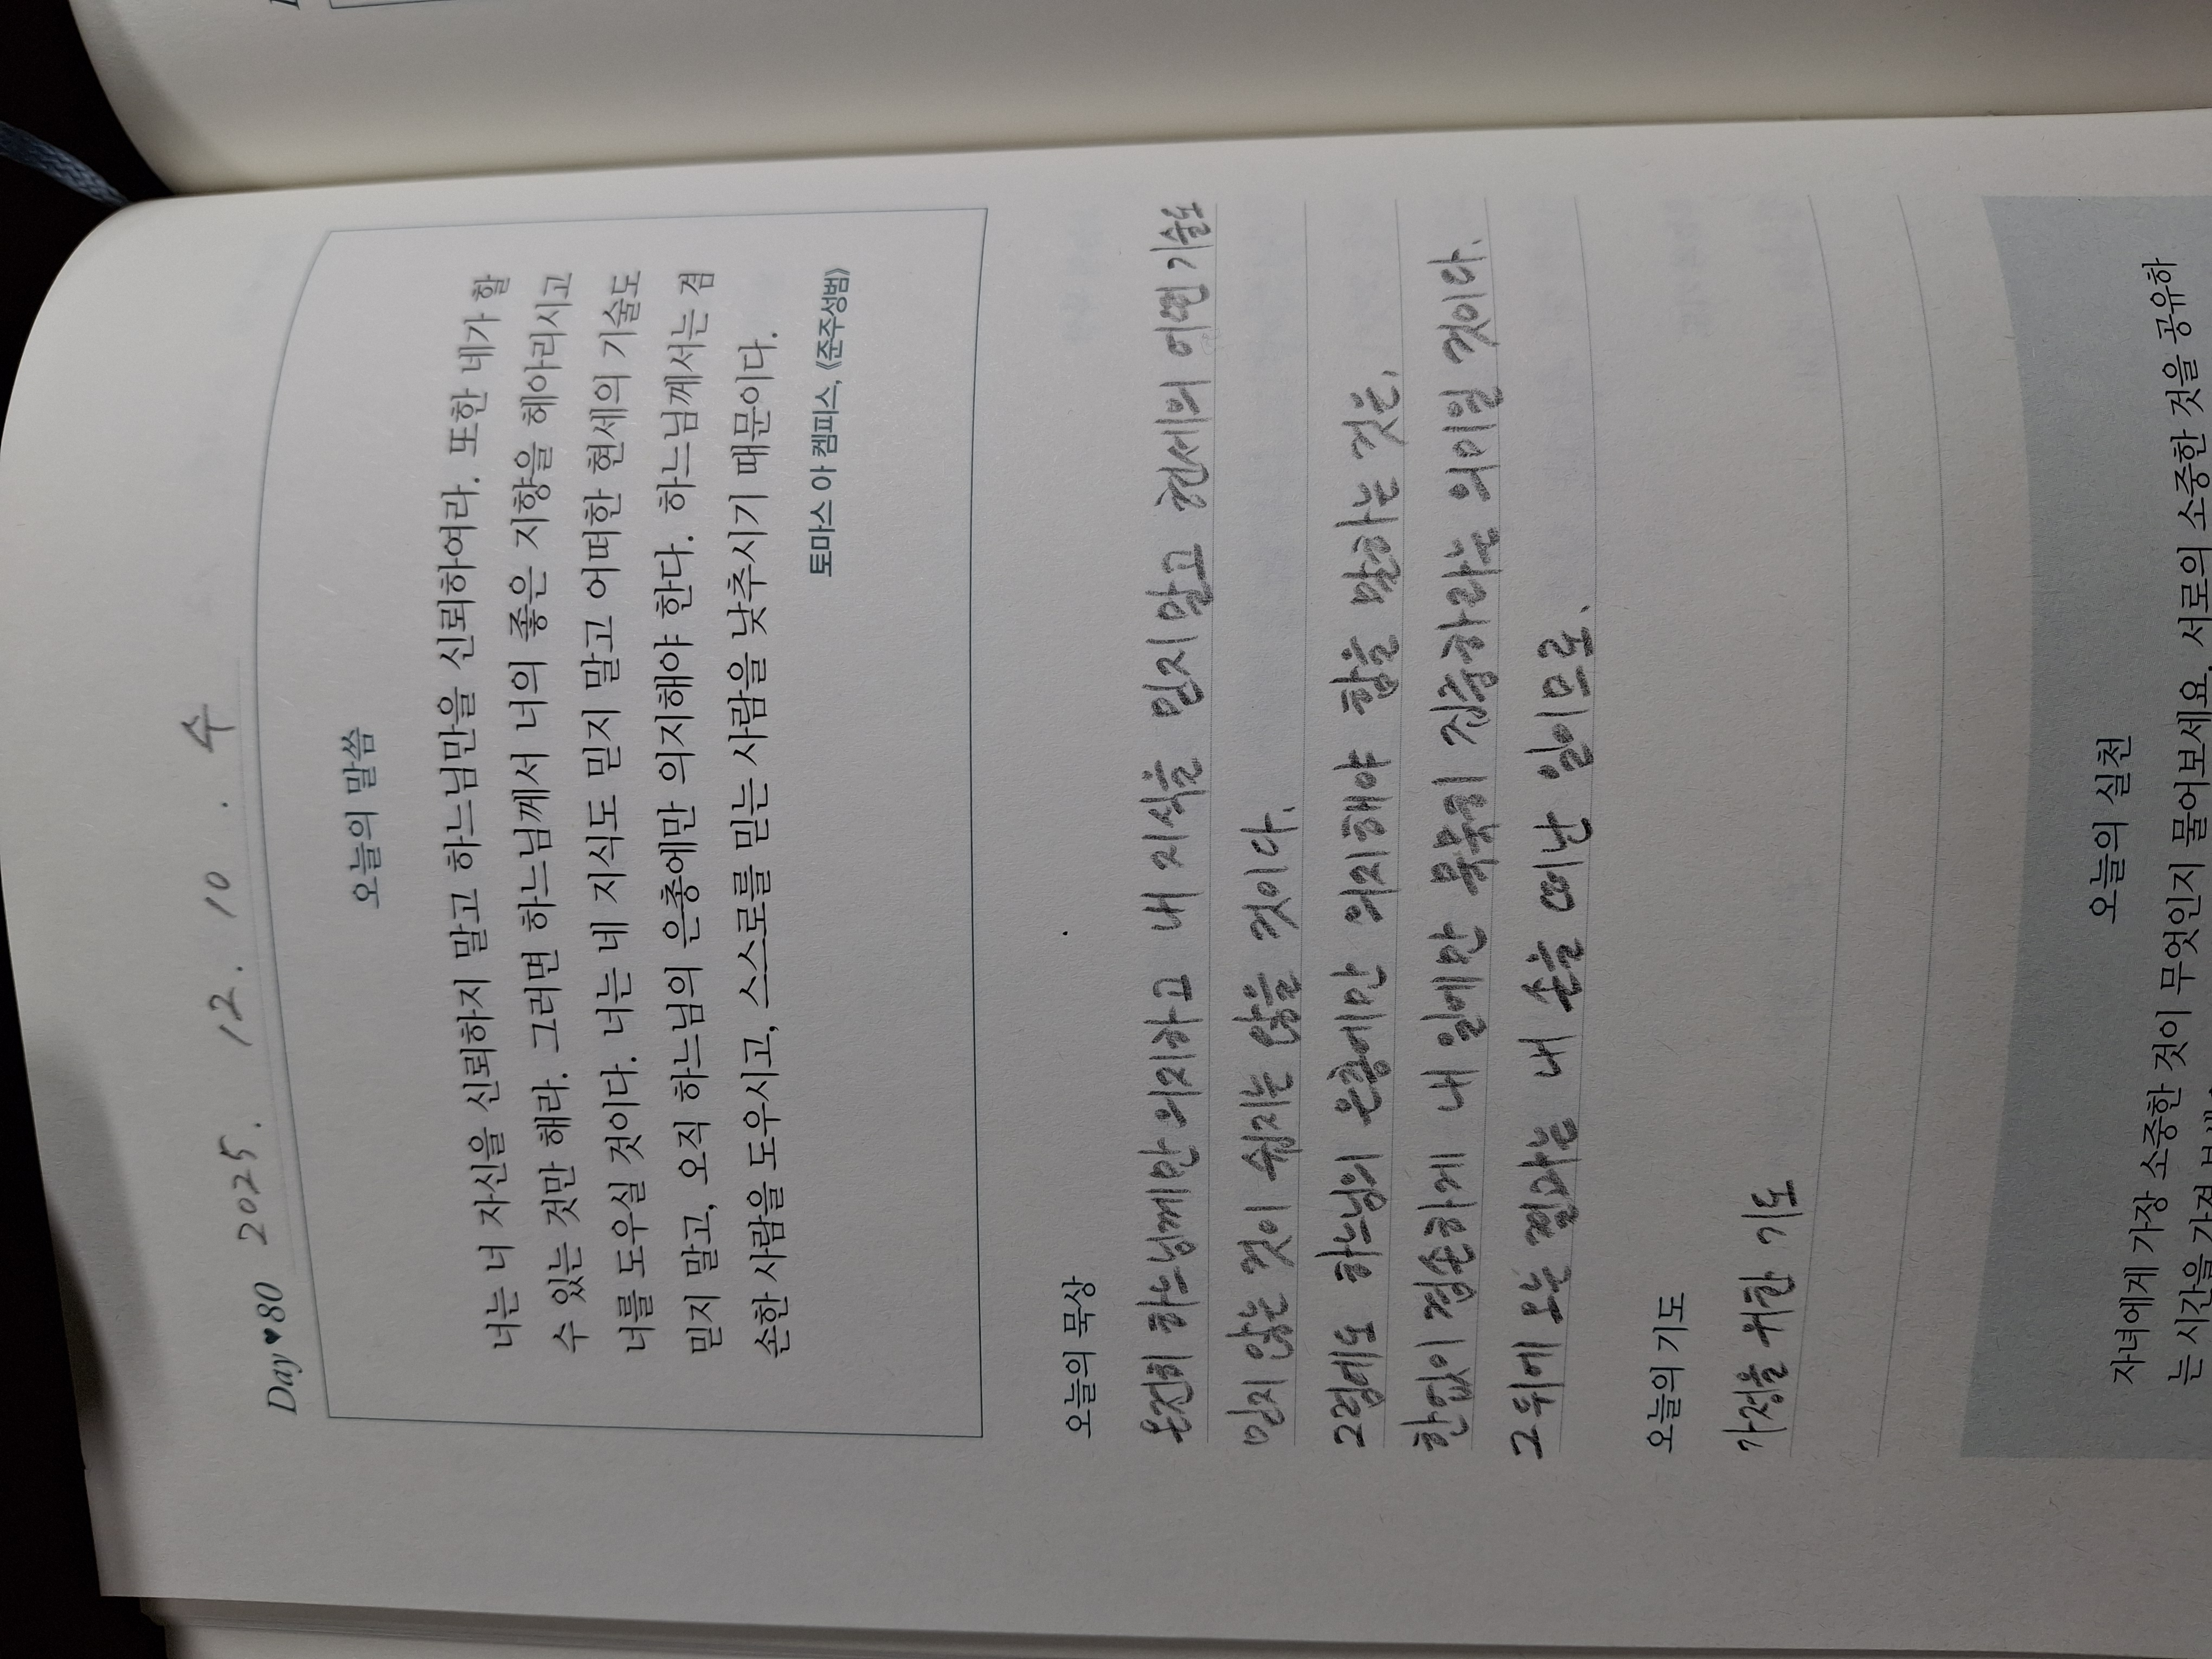 Day♥80 2025. 12. 10. 수
오늘의 말씀
너는 너 자신을 신뢰하지 말고 하느님만을 신뢰하여라. 또한 네가 할
수 있는 것만 해라. 그러면 하느님께서 너의 좋은 지향을 헤아리시고
너를 도우실 것이다. 너는 네 지식도 믿지 말고 어떠한 현세의 기술도
믿지 말고, 오직 하느님의 은총에만 의지해야 한다. 하느님께서는 겸
손한 사람을 도우시고, 스스로를 믿는 사람을 낮추시기 때문이다.
토마스 아 켐피스, 《준주성범》
오늘의 묵상
온전히 하느님께만 의지하고 내 지식을 믿지 말고 현세의 어떤 기술도
믿지 않는 것이 쉽지는 않을 것이다.
그럼에도 하느님의 은총에만 의지해야 함을 말하는 것은,
한없이 겸손하게 내 일에만 묵묵히 집중하라는 의미일 것이다.
그 뒤에 오는 결과는 내 손을 떠난 일이므로.
오늘의 기도
가정을 위한 기도
오늘의 실천
자녀에게 가장 소중한 것이 무엇인지 물어보세요. 서로의 소중한 것을 공유하
는 시간을 가져